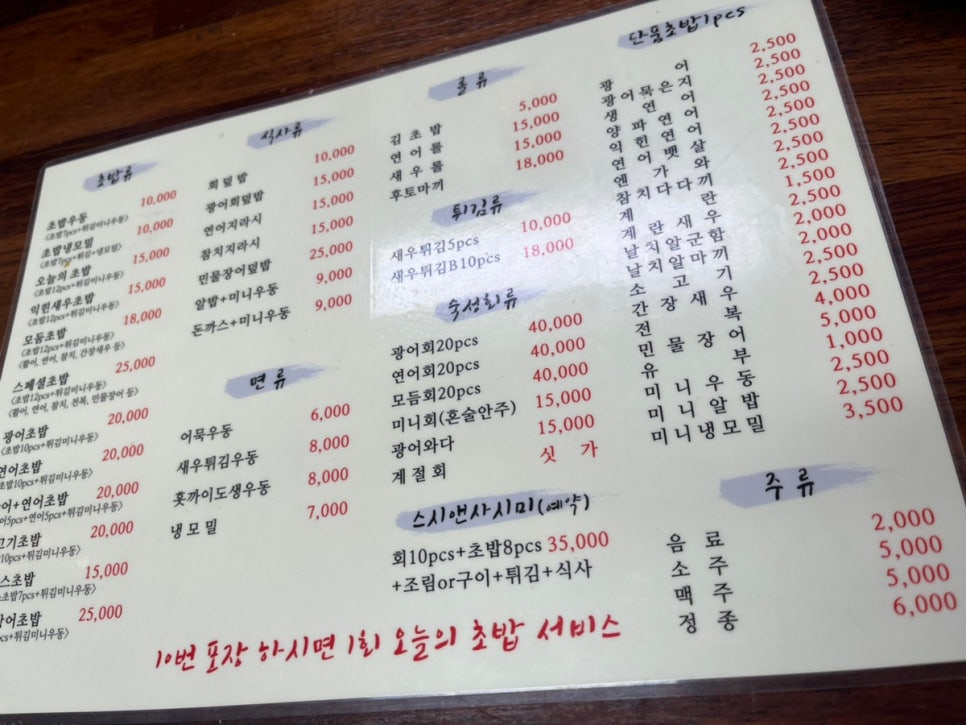 초밥류
초밥우동 10,000
(초밥7pcs+튀김미니우동)
초밥냉모밀 10,000
(초밥7pcs+튀김+냉모밀)
오늘의 초밥 15,000
(초밥12pcs+튀김미니우동)
익힌새우초밥 15,000
(초밥12pcs+튀김미니우동)
모듬초밥 18,000
(초밥12pcs+튀김미니우동)
(광어, 연어, 참치, 간장새우 등)
스페셜초밥 25,000
(초밥12pcs+튀김미니우동)
(광어, 연어, 참치, 전복, 민물장어 등)
광어초밥 20,000
(초밥10pcs+튀김미니우동)
연어초밥 20,000
10pcs+튀김미니우동)
어+연어초밥 20,000
어5pcs+연어5pcs+튀김미니우동)
고기초밥 20,000
10pcs+튀김미니우동)
스초밥 15,000
초밥7pcs+튀김미니우동)
장어초밥 25,000
pcs+튀김미니우동)
식사류
회덮밥 10,000
광어회덮밥 15,000
연어지라시 15,000
참치지라시 15,000
민물장어덮밥 25,000
알밥+미니우동 9,000
돈까스+미니우동 9,000
면류
어묵우동 6,000
새우튀김우동 8,000
홋까이도생우동 8,000
냉모밀 7,000
롤류
김초밥 5,000
연어롤 15,000
새우롤 15,000
후토마끼 18,000
튀김류
새우튀김5pcs 10,000
새우튀김B10pcs 18,000
숙성회류
광어회20pcs 40,000
연어회20pcs 40,000
모듬회20pcs 40,000
미니회(혼술안주) 15,000
광어와다 15,000
계절회 싯가
스시앤사시미(예약)
회10pcs+초밥8pcs 35,000
+조림or구이+튀김+식사
단품초밥1pcs
광어
광어묵은지
생연어
양파연어
익힌연어
연어뱃살
엔가와
참치다다끼
계란
계란새우
날치알군함
날치알마끼
소고기
간장새우
전복
민물장어
유부
미니우동
미니알밥
미니냉모밀
2,500
2,500
2,500
2,500
2,500
2,500
1,500
2,000
2,000
2,500
4,000
5,000
1,000
2,500
2,500
3,500
주류
음료 2,000
소주 5,000
맥주 5,000
정종 6,000
10번 포장 하시면 1회 오늘의 초밥 서비스